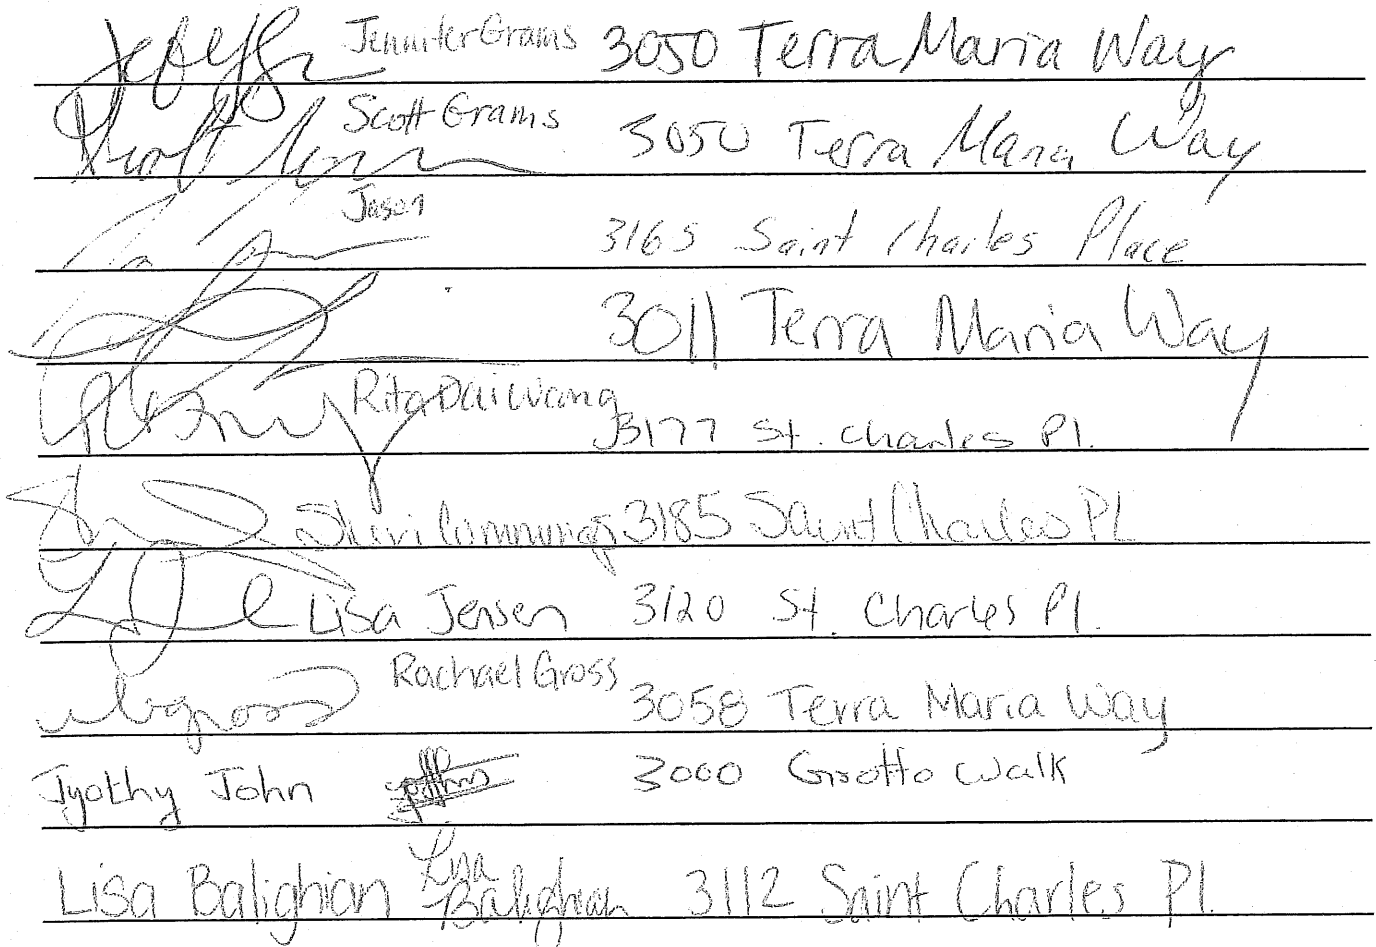 Jennifer Grams 3050 Terra Maria Way
Scott Grams 3050 Terra Maria Way
Jason 3165 Saint Charles Place
3011 Terra Maria Way
Rita Dai Wang 3177 St. Charles Pl.
Sheri Cummings 3185 Saint Charles PL
Lisa Jensen 3120 St. Charles Pl.
Rachael Gross 3058 Terra Maria Way
Jyothy John 3000 Grotto Walk
Lisa Balighian Lisa Balighian 3112 Saint Charles Pl.